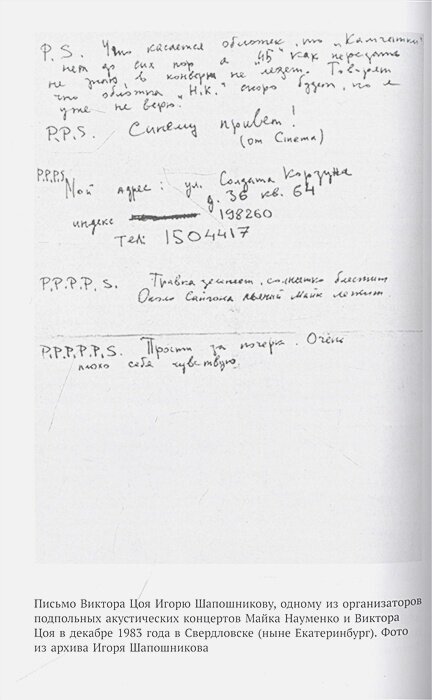 P.S. Что касается обложек, то „Камчатки"
нет до сих пор а „45" как передать
не знаю в конверт не лезет. Говорят
что обложка „Н.К." скоро будет, но я
уже не верю.
P.P.S. Синему привет!
(от Синета)
P.P.P.S. Мой адрес: ул. Солдата Корзуна
д. 36 кв. 64
индекс 198260
тел: 1504417
P.P.P.P.S. Травка зеленеет, солнышко блестит
Около Сайгона пьяный Майк лежит
P.P.P.P.P.S. Прости за почерк. Очень
плохо себя чувствую
Письмо Виктора Цоя Игорю Шапошникову, одному из организаторов
подпольных акустических концертов Майка Науменко и Виктора
Цоя в декабре 1983 года в Свердловске (ныне Екатеринбург). Фото
из архива Игоря Шапошникова